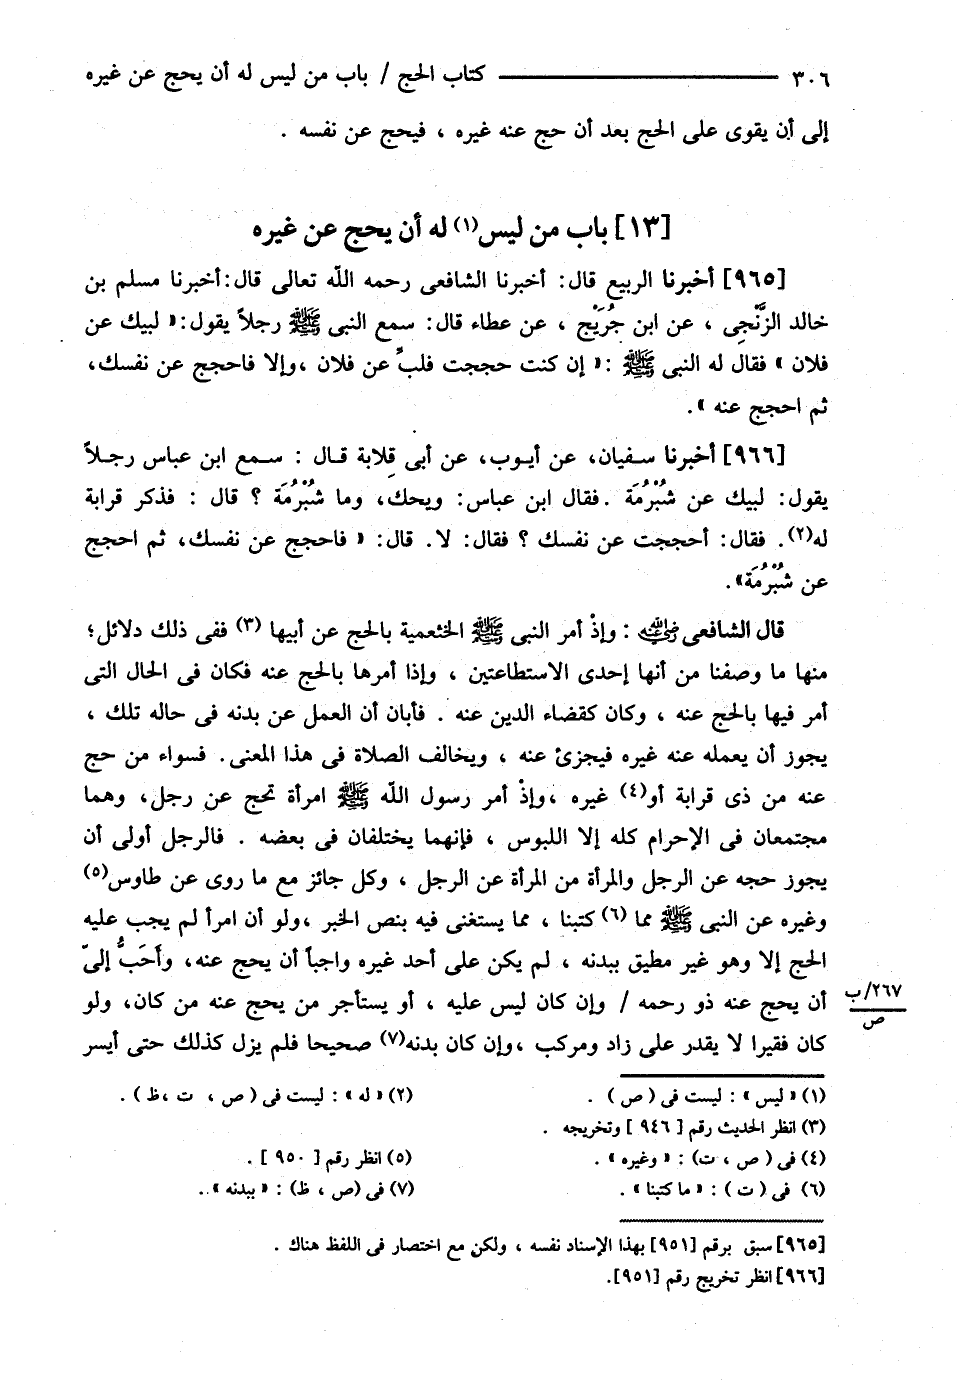 ٣٠٦ ـــــــــ كتاب الحج / باب من ليس له أن يحج عن غيره
إلى أن يقوى على الحج بعد أن حج عنه غيره ، فيحج عن نفسه .
[١٣] باب من ليس(١) له أن يحج عن غيره
[٩٦٥] أخبرنا الربيع قال: أخبرنا الشافعى رحمه الله تعالى قال:أخبرنا مسلم بن
خالد الزَّنْجِى ، عن ابن جُرَيْج ، عن عطاء قال: سمع النبى ﷺ رجلاً يقول:« لبيك عن
فلان » فقال له النبى ﷺ :« إن كنت حججت فلبِّ عن فلان ،وإلا فاحجج عن نفسك،
ثم احجج عنه ».
[٩٦٦] أخبرنا سفيان، عن أيوب، عن أبى قِلابة قال : سمع ابن عباس رجلاً
يقول: لبيك عن شُبْرُمَة .فقال ابن عباس: ويحك، وما شُبْرُمَة ؟ قال : فذكر قرابة
له(٢). فقال: أحججت عن نفسك ؟ فقال: لا. قال: « فاحجج عن نفسك، ثم احجج
عن شُبْرُمَة».
قال الشافعى رضي الله عنه : وإذْ أمر النبى ﷺ الخثعمية بالحج عن أبيها (٣) ففى ذلك دلائل؛
منها ما وصفنا من أنها إحدى الاستطاعتين ، وإذا أمرها بالحج عنه فكان فى الحال التى
أمر فيها بالحج عنه ، وكان كقضاء الدين عنه . فأبان أن العمل عن بدنه فى حاله تلك ،
يجوز أن يعمله عنه غيره فيجزئ عنه ، ويخالف الصلاة فى هذا المعنى. فسواء من حج
عنه من ذى قرابة أو(٤) غيره ،وإذْ أمر رسول الله ﷺ امرأة تحج عن رجل، وهما
مجتمعان فى الإحرام كله إلا اللبوس ، فإنهما يختلفان فى بعضه . فالرجل أولى أن
يجوز حجه عن الرجل والمرأة من المرأة عن الرجل ، وكل جائز مع ما روى عن طاوس(٥)
وغيره عن النبى ﷺ مما (٦) كتبنا ، مما يستغنى فيه بنص الخبر ،ولو أن امرأ لم يجب عليه
الحج إلا وهو غير مطيق ببدنه ، لم يكن على أحد غيره واجباً أن يحج عنه، وأَحَبُّ إلىّ
أن يحج عنه ذو رحمه / وإن كان ليس عليه ، أو يستأجر من يحج عنه من كان، ولو
٢٦٧/ب
ص
كان فقيرا لا يقدر على زاد ومركب ،وإن كان بدنه(٧) صحيحا فلم يزل كذلك حتى أيسر
(١) « ليس » : ليست فى ( ص ) . (٢) « له » : ليست فى ( ص ، ت ،ظ ) .
(٣) انظر الحديث رقم [ ٩٤٦ ] وتخريجه .
(٤) فى ( ص ، ت) : « وغيره » . (٥) انظر رقم [ ٩٥٠ ] .
(٦) فى ( ت ) : « ما كتبنا » . (٧) فى (ص ، ظ) : « ببدنه » .
[٩٦٥] سبق برقم [٩٥١] بهذا الإسناد نفسه ، ولكن مع اختصار فى اللفظ هناك .
[٩٦٦] انظر تخريج رقم [٩٥١].